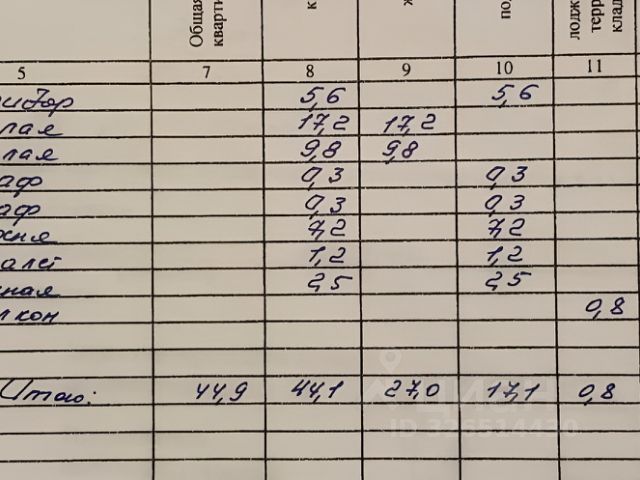 Общая
кварти
к
ж
по
лодж
терр
клад
5 7 8 9 10 11
идор 5,6 5,6
лая 17,2 17,2
лая 9,8 9,8
аф 0,3 0,3
аф 0,3 0,3
хня 7,2 7,2
алет 1,2 1,2
ная 2,5 2,5
лкон 0,8
Итого: 44,9 44,1 27,0 17,1 0,8